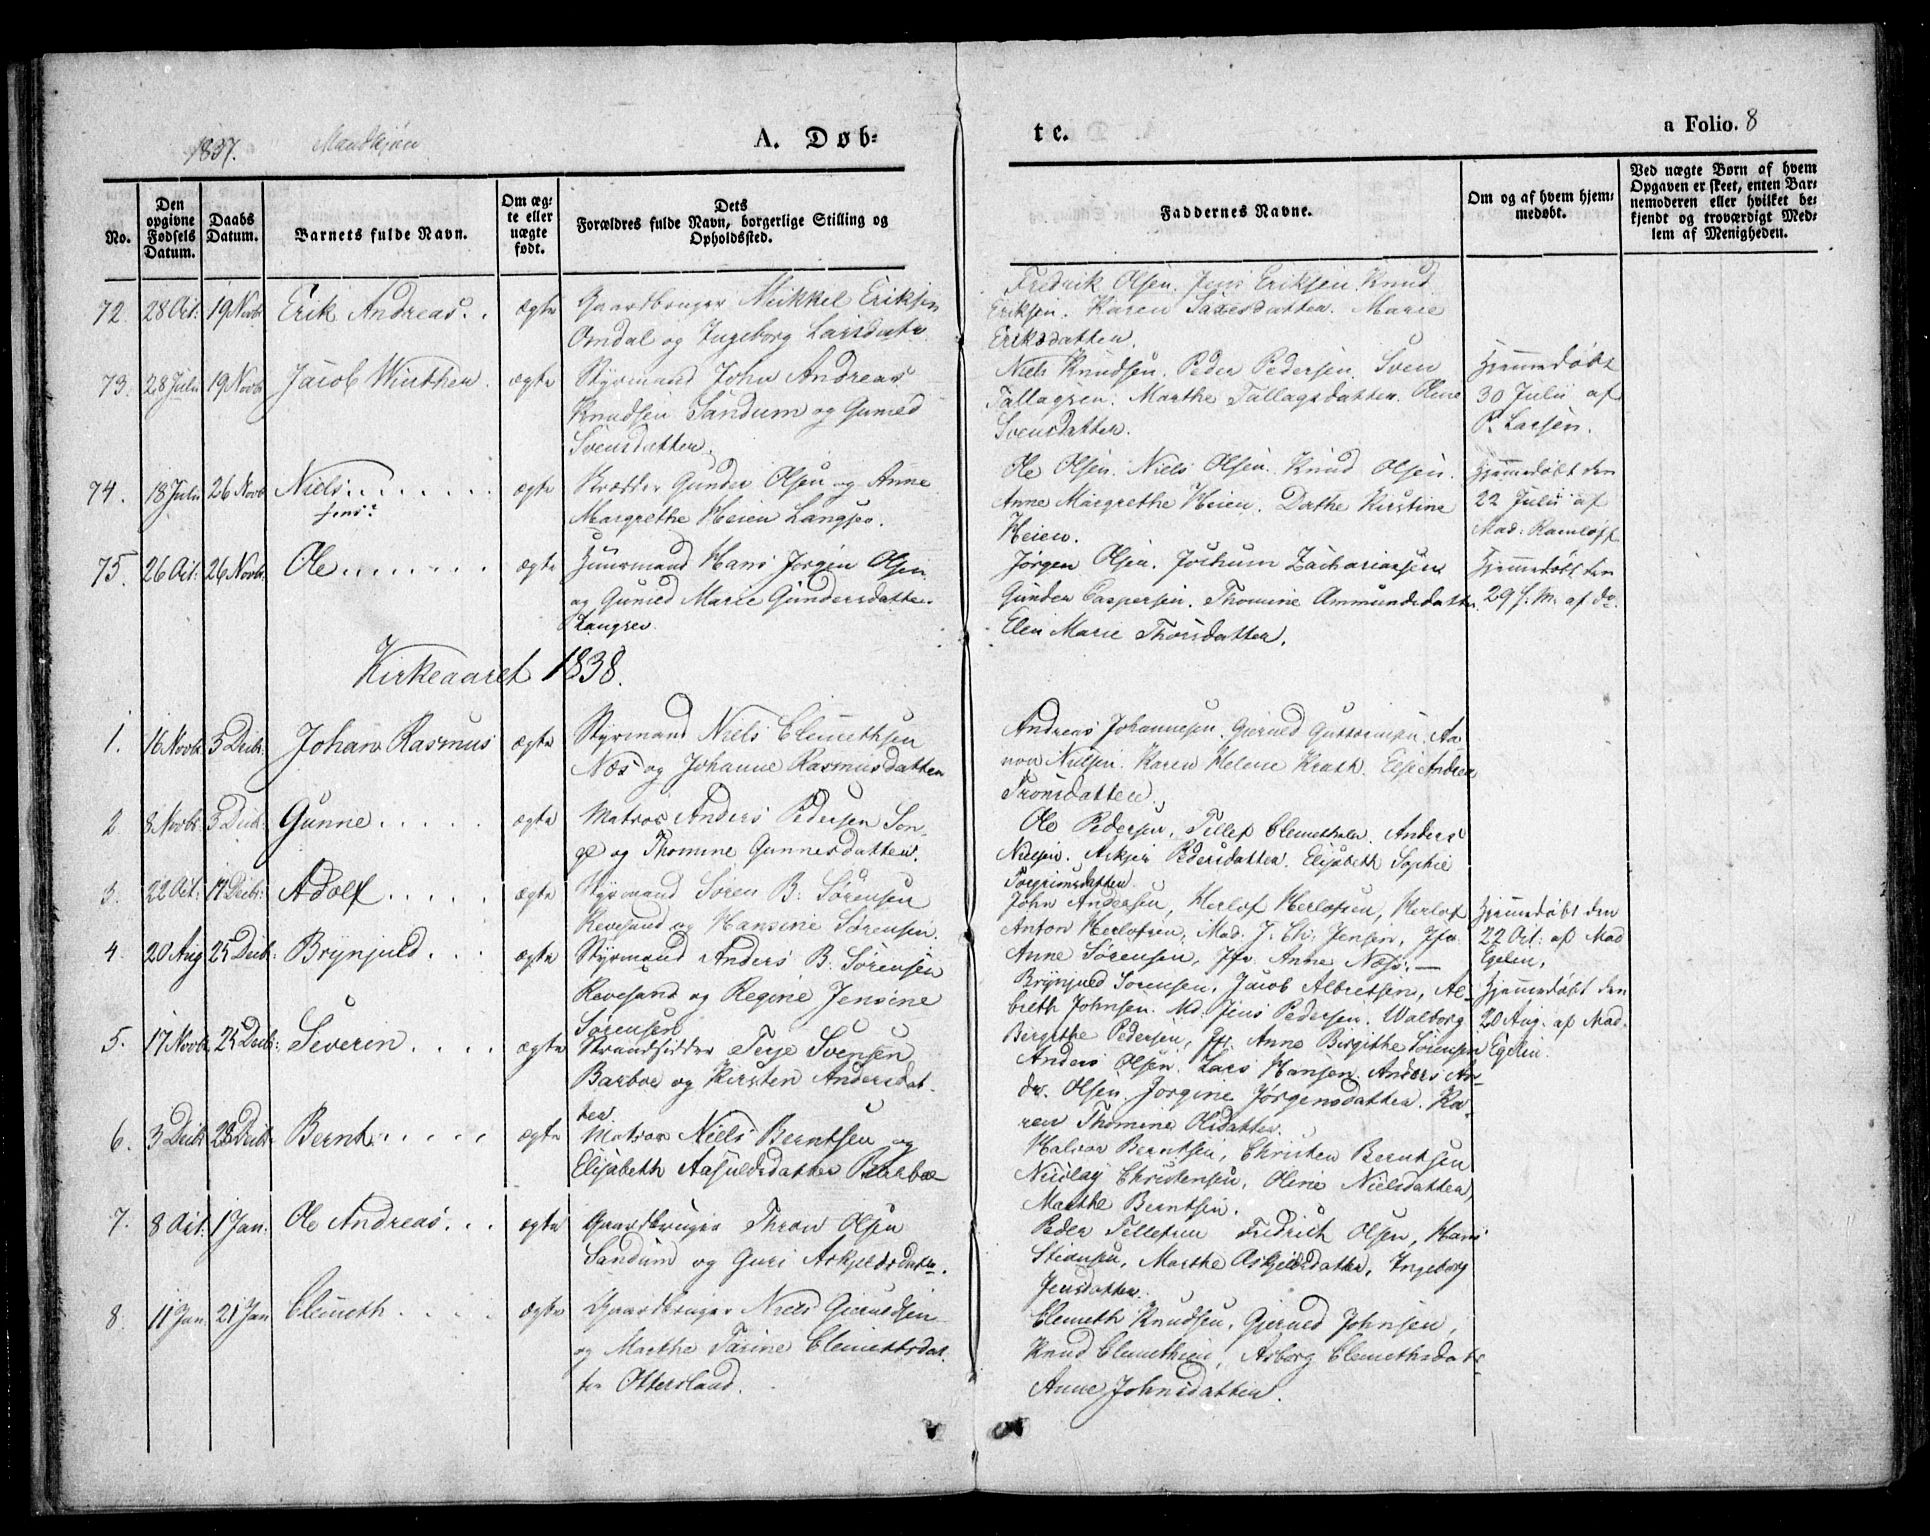 1837. Mandkjøn
A. Døb-
te.
a Folio. 8
No.
Den opgivne Fødsels Datum.
Daabs Datum.
Barnets fulde Navn.
Om ægte eller uægte født.
Dets Forældres fulde Navn, borgerlige Stilling og Opholdssted.
Faddernes Navne.
Om og af hvem hjemmedøbt.
Ved uægte Børn af hvem Opgaven er skeet, enten Barnemoderen eller hvilket bekjendt og troværdigt Medlem af Menigheden.
72. 28 Oct: 19 Novb Erik Andreas . . ægte Gaardbruger Mikkel Eriksen
Omdal og Ingeborg Larsdatr
Fredrik Olsen. Jens Eriksen. Knud
Eriksen. Karen Saxesdatter. Marie
Eriksdatter.
73. 28 Julii 19 Novb Jacob Winther. ægte Styrmand John Andreas
Knudsen Sandum og Gunild
Svensdatter.
Niels Knudsen. Peder Pedersen. Sven
Tallagsen. Marthe Tallagsdatter. Oline
Svensdatter.
Hjemmedøbt
30 Julii af
P. Larsen.
74. 18 Julii 26 Novb Niels . . . . . . ægte Skrædder Gunder Olsen og Anne
Margrethe Heien Langsev.
Ole Olsen. Niels Olsen. Knud Olsen.
Anne Margrethe Heien. Dorthe Kirstine
Heien.
Hjemmedøbt den
22 Julii af
Mad: Ramløff
75. 26 Oct: 26 Novb. Ole . . . . . . . ægte Huusmand Hans Jørgen Olsen
og Gunild Marie Gundersdatter
Langsev.
Jørgen Olsen. Jochum Zachariassen
Gunder Caspersen. Thomine Ammundsdatter.
Elen Marie Thorsdatter.
Hjemmedøbt den
29 f. M. af do.
Kirkeaaret 1838.
1. 16 Novb. 3 Decb: Johan Rasmus ægte Styrmand Niels Clemethsen
Næs og Johanne Rasmusdatter
Andreas Johannesen. Gjeruld Guttormsen. Aa-
non Nilsen. Karen Helene Krath. Else Andrea
Tronsdatter.
2. 8 Novb. 3 Decb: Gunne . . . . . ægte Matros Anders Pedersen Son-
ge og Thomine Gunnesdatter.
Ole Pedersen, Tellef Clemethsen. Anders
Nielsen. Askjer Pedersdatter. Elisabeth Sophie
Torgrimsdatter.
3. 22 Oct: 17 Decb: Adolf . . . . . ægte Styrmand Søren B. Sørensen
Revesand og Hansine Sørensen.
John Andersen, Herlof Herlofsen, Herlof
Anton Herlofsen, Mad. J. Chr. Jensen, Jfr.
Anne Sørensen, Jfr. Anne Næss.
Hjemmedøbt den
22 Oct: af Mad
Egelen,
4. 20 Aug 25 Decb: Brynjuld . . . ægte Styrmand Anders B. Sørensen
Revesand og Regine Jensine
Sørensen
Brynjuld Sørensen, Jacob Albretsen, Al-
breth Johnsen. Md. Jens Pedersen. Walborg
Birgithe Pedersen, Jfr. Anne Birgithe Sørensen
Hjemmedøbt den
20 Aug. af Mad.
Egelen.
5. 17 Novb. 25 Decb: Severin . . . . ægte Strandsidder Terje Svensen
Barboe og Kirsten Andersdat-
ter.
Anders Olsen. Lars Hansen. Anders An-
dr. Olsen. Jorgine Jørgensdatter. Ka-
ren Thomine Olsdatter.
6. 3 Decb 28 Decb: Bernt . . . . . ægte Matros Niels Berntsen og
Elisabeth Aasuldsdatter Barboe
Halvor Berntsen, Christen Berntsen
Nicolay Christensen, Oline Nielsdatter,
Marthe Berntsen.
7. 8 Oct. 1 Jan: Ole Andreas . . . ægte Gaardbruger Thron Olsen
Sandum og Guri Askjelsdatr.
Peder Tellefsen Fredrich Olsen, Hans
Steensen, Marthe Askjelsdatter, Ingeborg
Jensdatter.
8. 11 Jan. 21 Jan Clemeth . . . . ægte Gaardbruger Niels Gjeruldsen
og Marthe Tarine Clemetsdat-
ter Ottersland.
Clemeth Knudsen, Gjeruld Johnsen,
Knud Clemethsen, Asborg Clemethsdatr
Anne Johnsdatter.